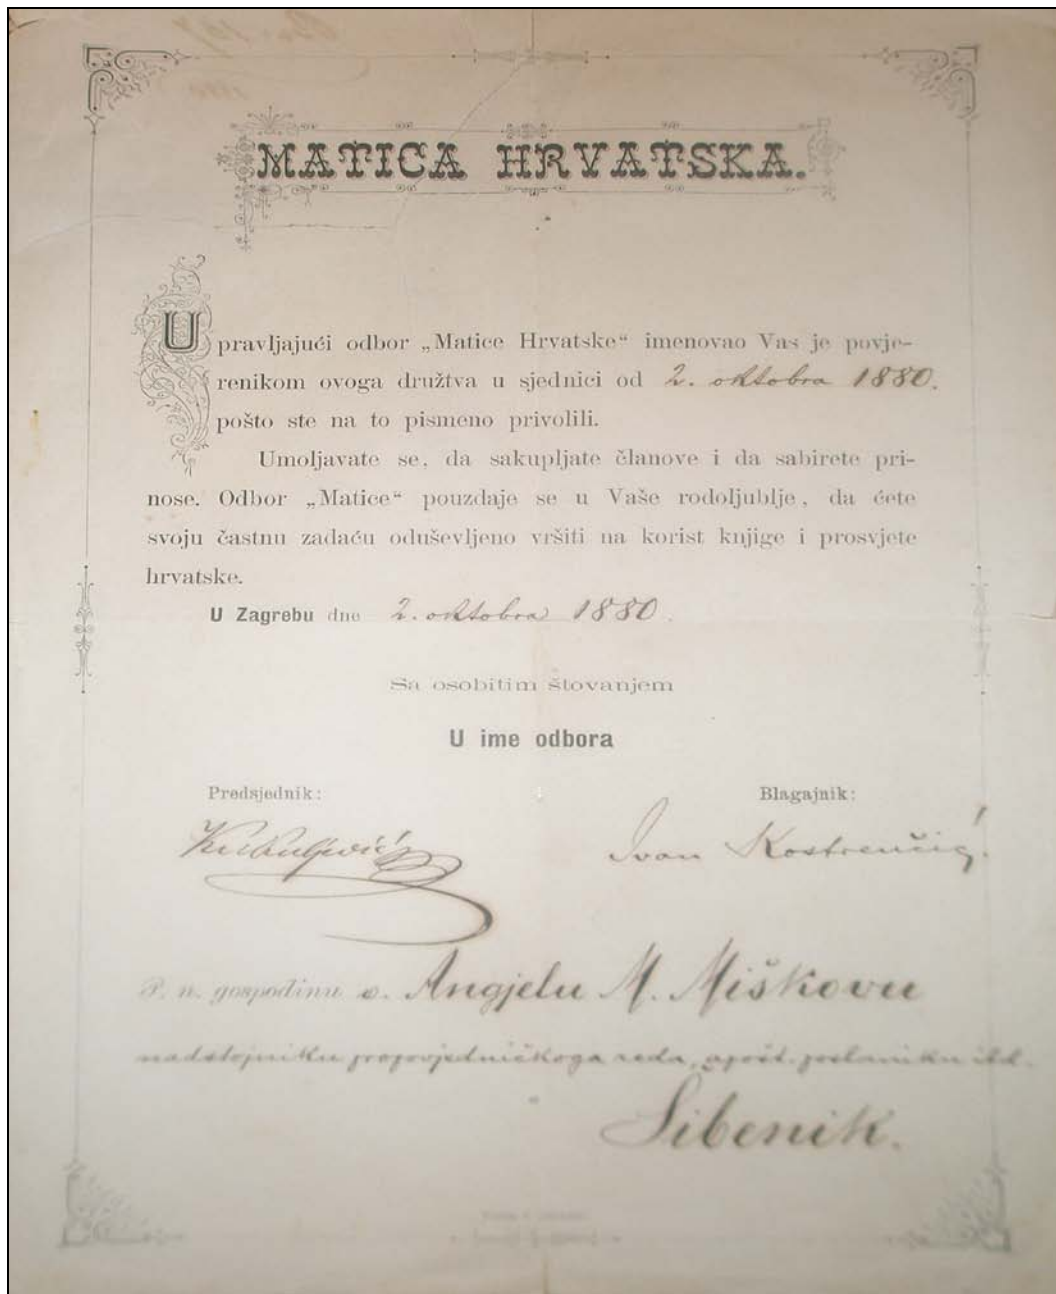 MATICA HRVATSKA.
Upravljajući odbor „Matice Hrvatske“ imenovao Vas je povje-
renikom ovoga družtva u sjednici od 2. oktobra 1880.
pošto ste na to pismeno privolili.
Umoljavate se, da sakupljate članove i da sabirete pri-
nose. Odbor „Matice“ pouzdaje se u Vaše rodoljublje, da ćete
svoju častnu zadaću oduševljeno vršiti na korist knjige i prosvjete
hrvatske.
U Zagrebu dne 2. oktobra 1880.
Sa osobitim štovanjem
U ime odbora
Predsjednik: Blagajnik:
Kukuljević Ivan Kostrenčić
P. n. gospodinu o. Angjelu M. Miškovu
nadstojniku propovjedničkoga reda, apošt. poslaniku itd.
Šibenik.